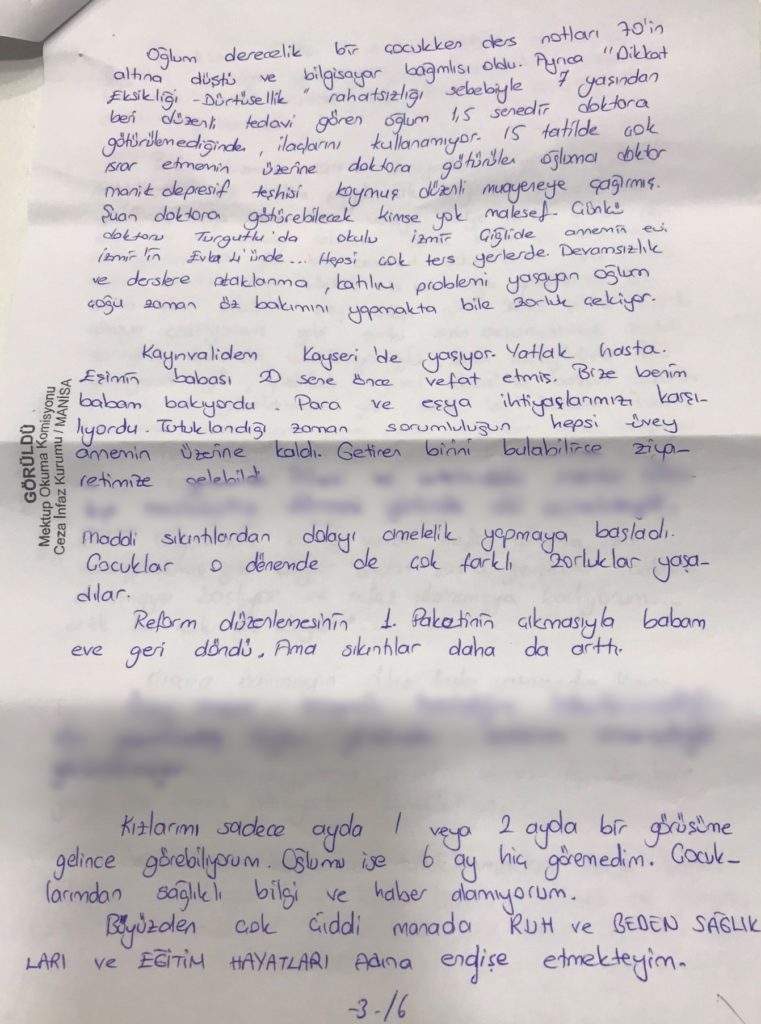 Oğlum derecelik bir çocukken ders notları 70'in
altına düştü ve bilgisayar bağımlısı oldu. Ayrıca "Dikkat
Eksikliği - Dürtüsellik" rahatsızlığı sebebiyle 7 yaşından
beri düzenli tedavi gören oğlum 1,5 senedir doktora
götürülemediğinden, ilaçlarını kullanamıyor. 15 tatilde çok
ısrar etmemin üzerine doktora götürülen oğluma doktor
manik depresif teşhisi koymuş düzenli muayeneye çağırmış.
Şuan doktora götürebilecek kimse yok malesef. Çünkü
doktoru Turgutlu'da okulu İzmir Çiğlide annemin evi
İzmir'in Evka 4'ünde... Hepsi çok ters yerlerde. Devamsızlık
ve derslere ataklanma, katılım problemi yaşayan oğlum
çoğu zaman öz bakımını yapmakta bile zorluk çekiyor.
Kayınvalidem Kayseri'de yaşıyor. Yatlak hasta.
Eşimin babası 20 sene önce vefat etmiş. Bize benim
babam bakıyordu. Para ve eşya ihtiyaşlarımızı karşı-
lıyordu. Tutuklandığı zaman sorumluluğun hepsi üvey
annemin üzerine kaldı. Getiren birini bulabilirse ziya-
retimize gelebildi
Maddi sıkıntılardan dolayı amelelik yapmaya başladı.
Çocuklar o dönemde de çok farklı zorluklar yaşa-
dılar.
Reform düzenlemesinin 1. Paketinin çıkmasıyla babam
eve geri döndü. Ama sıkıntılar daha da arttı.
Kızlarımı sadece ayda 1 veya 2 ayda bir görüşüme
gelince görebiliyorum. Oğlumu ise 6 ay hiç göremedim. Çocuk-
larımdan sağlıklı bilgi ve haber alamıyorum.
Buyüzden çok ciddi manada RUH ve BEDEN SAĞLIK
LARI ve EĞİTİM HAYATLARI Adına endişe etmekteyim.
-3-/6
GÖRÜLDÜ
Mektup Okuma Komisyonu
Ceza İnfaz Kurumu / MANİSA